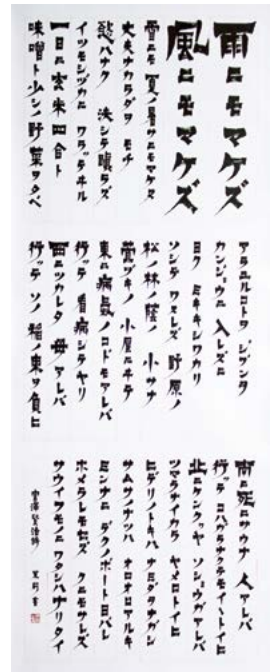 雨ニモマケズ
風ニモマケズ
雪ニモ 夏ノ暑サニモマケヌ
丈夫ナカラダヲ モチ
慾ハナク 決シテ瞋ラズ
イツモシヅカニ ワラッテヰル
一日ニ玄米四合ト
味噌ト少シノ野菜ヲタベ
アラユルコトヲ ジブンヲ
カンジョウニ 入レズニ
ヨク ミキキシワカリ
ソシテ ワスレズ 野原ノ
松ノ林ノ蔭ノ 小サナ
萱ブキノ 小屋ニヰテ
東ニ病気ノコドモアレバ
行ッテ 看病シテヤリ
西ニツカレタ 母アレバ
行ッテ ソノ 稲ノ束ヲ負ヒ
南ニ死ニサウナ 人アレバ
行ッテ コハガラナクテモ イヽトイヒ
北ニケンクヮヤ ソショウガアレバ
ツマラナイカラ ヤメロトイヒ
ヒデリノトキハ ナミダヲナガシ
サムサノナツハ オロオロアルキ
ミンナニ デクノボートヨバレ
ホメラレモセズ クニモサレズ
サウイフモノニ ワタシハナリタイ
宮澤賢治詩 書